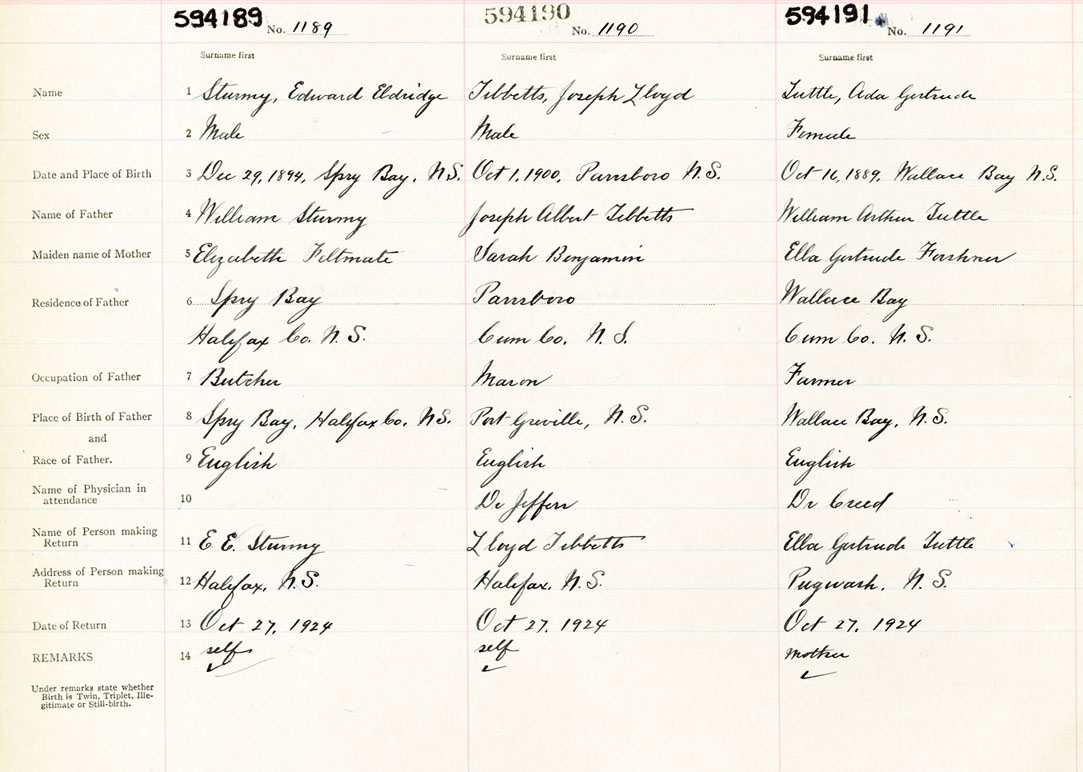 594189 No. 1189 594190 No. 1190 594191 No. 1191
Surname first Surname first Surname first
Name 1 Sturmy, Edward Eldridge Tibbetts, Joseph Lloyd Tuttle, Ada Gertrude
Sex 2 Male Male Female
Date and Place of Birth 3 Dec 29, 1894, Spry Bay, N.S. Oct 1, 1900, Parrsboro N.S. Oct 16, 1889, Wallace Bay N.S.
Name of Father 4 William Sturmy Joseph Albert Tibbetts William Arthur Tuttle
Maiden name of Mother 5 Elizabeth Feltmate Sarah Benjamin Ella Gertrude Forshner
Residence of Father 6 Spry Bay Parrsboro Wallace Bay
Halifax Co. N.S. Cum Co. N.S. Cum Co. N.S.
Occupation of Father 7 Butcher Mason Farmer
Place of Birth of Father 8 Spry Bay, Halifax Co. N.S. Port Greville, N.S. Wallace Bay, N.S.
and
Race of Father. 9 English English English
Name of Physician in
attendance 10 Dr Jeffers Dr Creed
Name of Person making
Return 11 E. E. Sturmy Lloyd Tibbetts Ella Gertrude Tuttle
Address of Person making
Return 12 Halifax, N.S. Halifax. N.S. Pugwash. N.S.
Date of Return 13 Oct 27, 1924 Oct 27, 1924 Oct 27, 1924
REMARKS 14 self self mother
Under remarks state whether
Birth is Twin, Triplet, Ille-
gitimate or Still-birth.